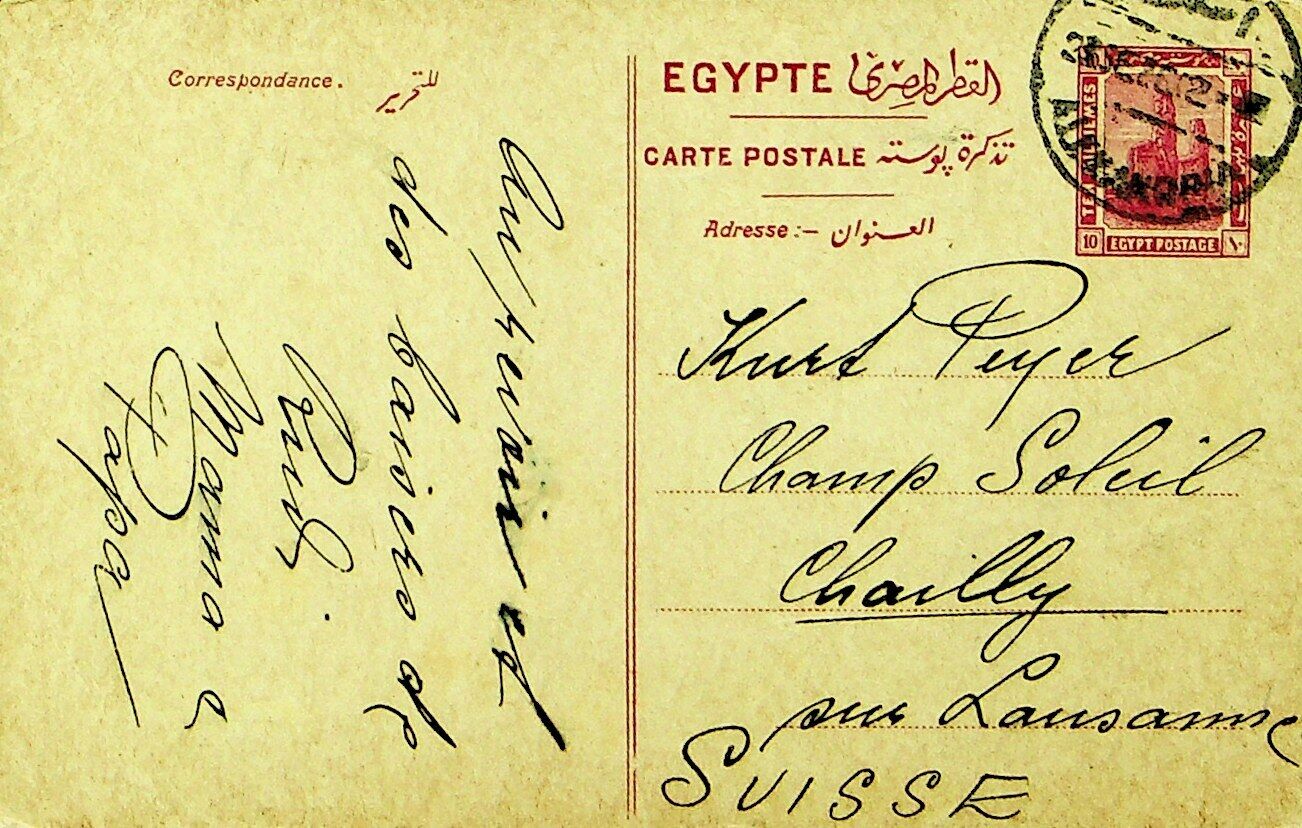 Correspondance. للتحرير
Au revoir et
des baisers de
Mama e
Papa
EGYPTE القطر المصرى
CARTE POSTALE تذكرة پوسته
Adresse :- العنوان
TEN MILLIEMES
10 EGYPT POSTAGE ١٠
Kurt Peyer
Champ Soleil
Chailly
sur Lausanne
SUISSE